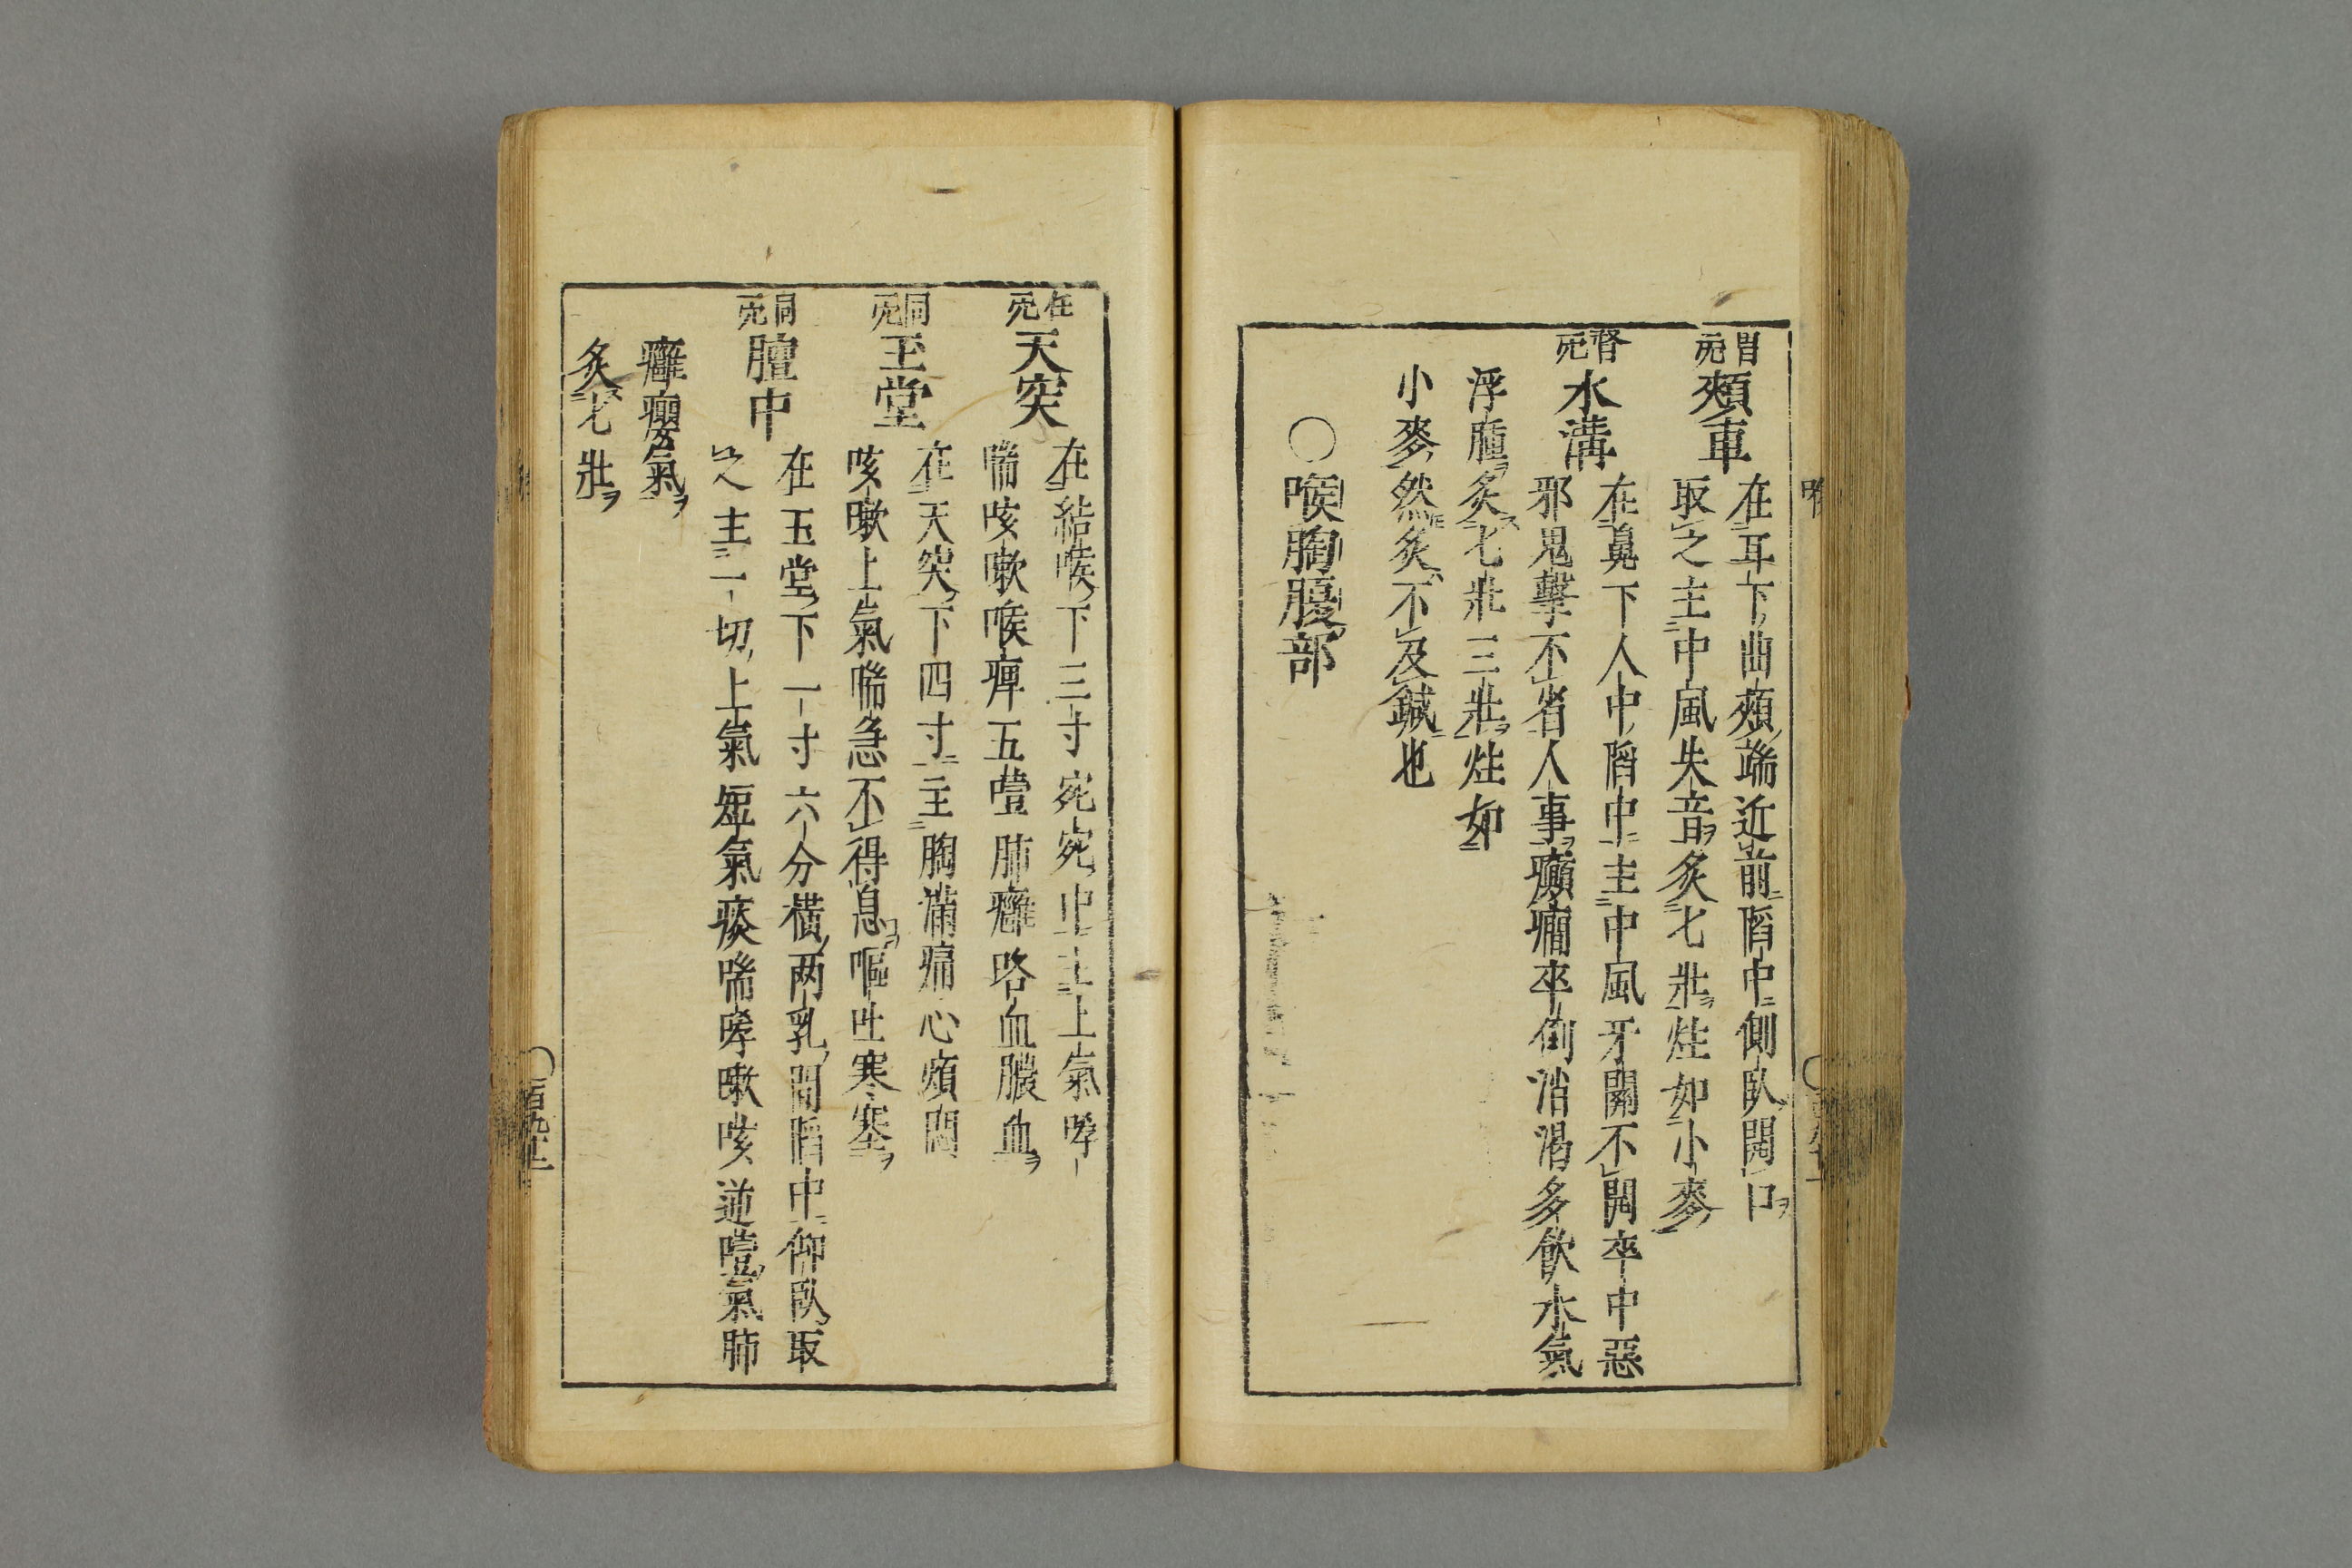 胃穴 頰車 在耳下曲頰端近前陷中側臥開口ヲ
取之主中風失音ヲ灸七壯ヲ炷如小麥
督穴 水溝 在鼻下人中陷中主中風牙關不開卒中惡
邪鬼擊不省人事ヲ癲癇卒倒消渴多飲水氣
浮腫ヲ灸七壯三壯ヲ炷如
小麥然灸不及鍼也
○喉胸腹部
任穴 天突 在結喉下三寸宛宛中主上氣哮
喘咳嗽喉痺五噎肺癰咯血膿血ヲ
同穴 玉堂 在天突下四寸主胸滿痛心煩悶
咳嗽上氣喘急不得息ヲ嘔吐寒塞ヲ
同穴 膻中 在玉堂下一寸六分橫两乳間陷中仰臥取
之主一切上氣短氣痰喘哮嗽咳逆噎氣肺
癰癭氣ヲ
灸七壯ヲ